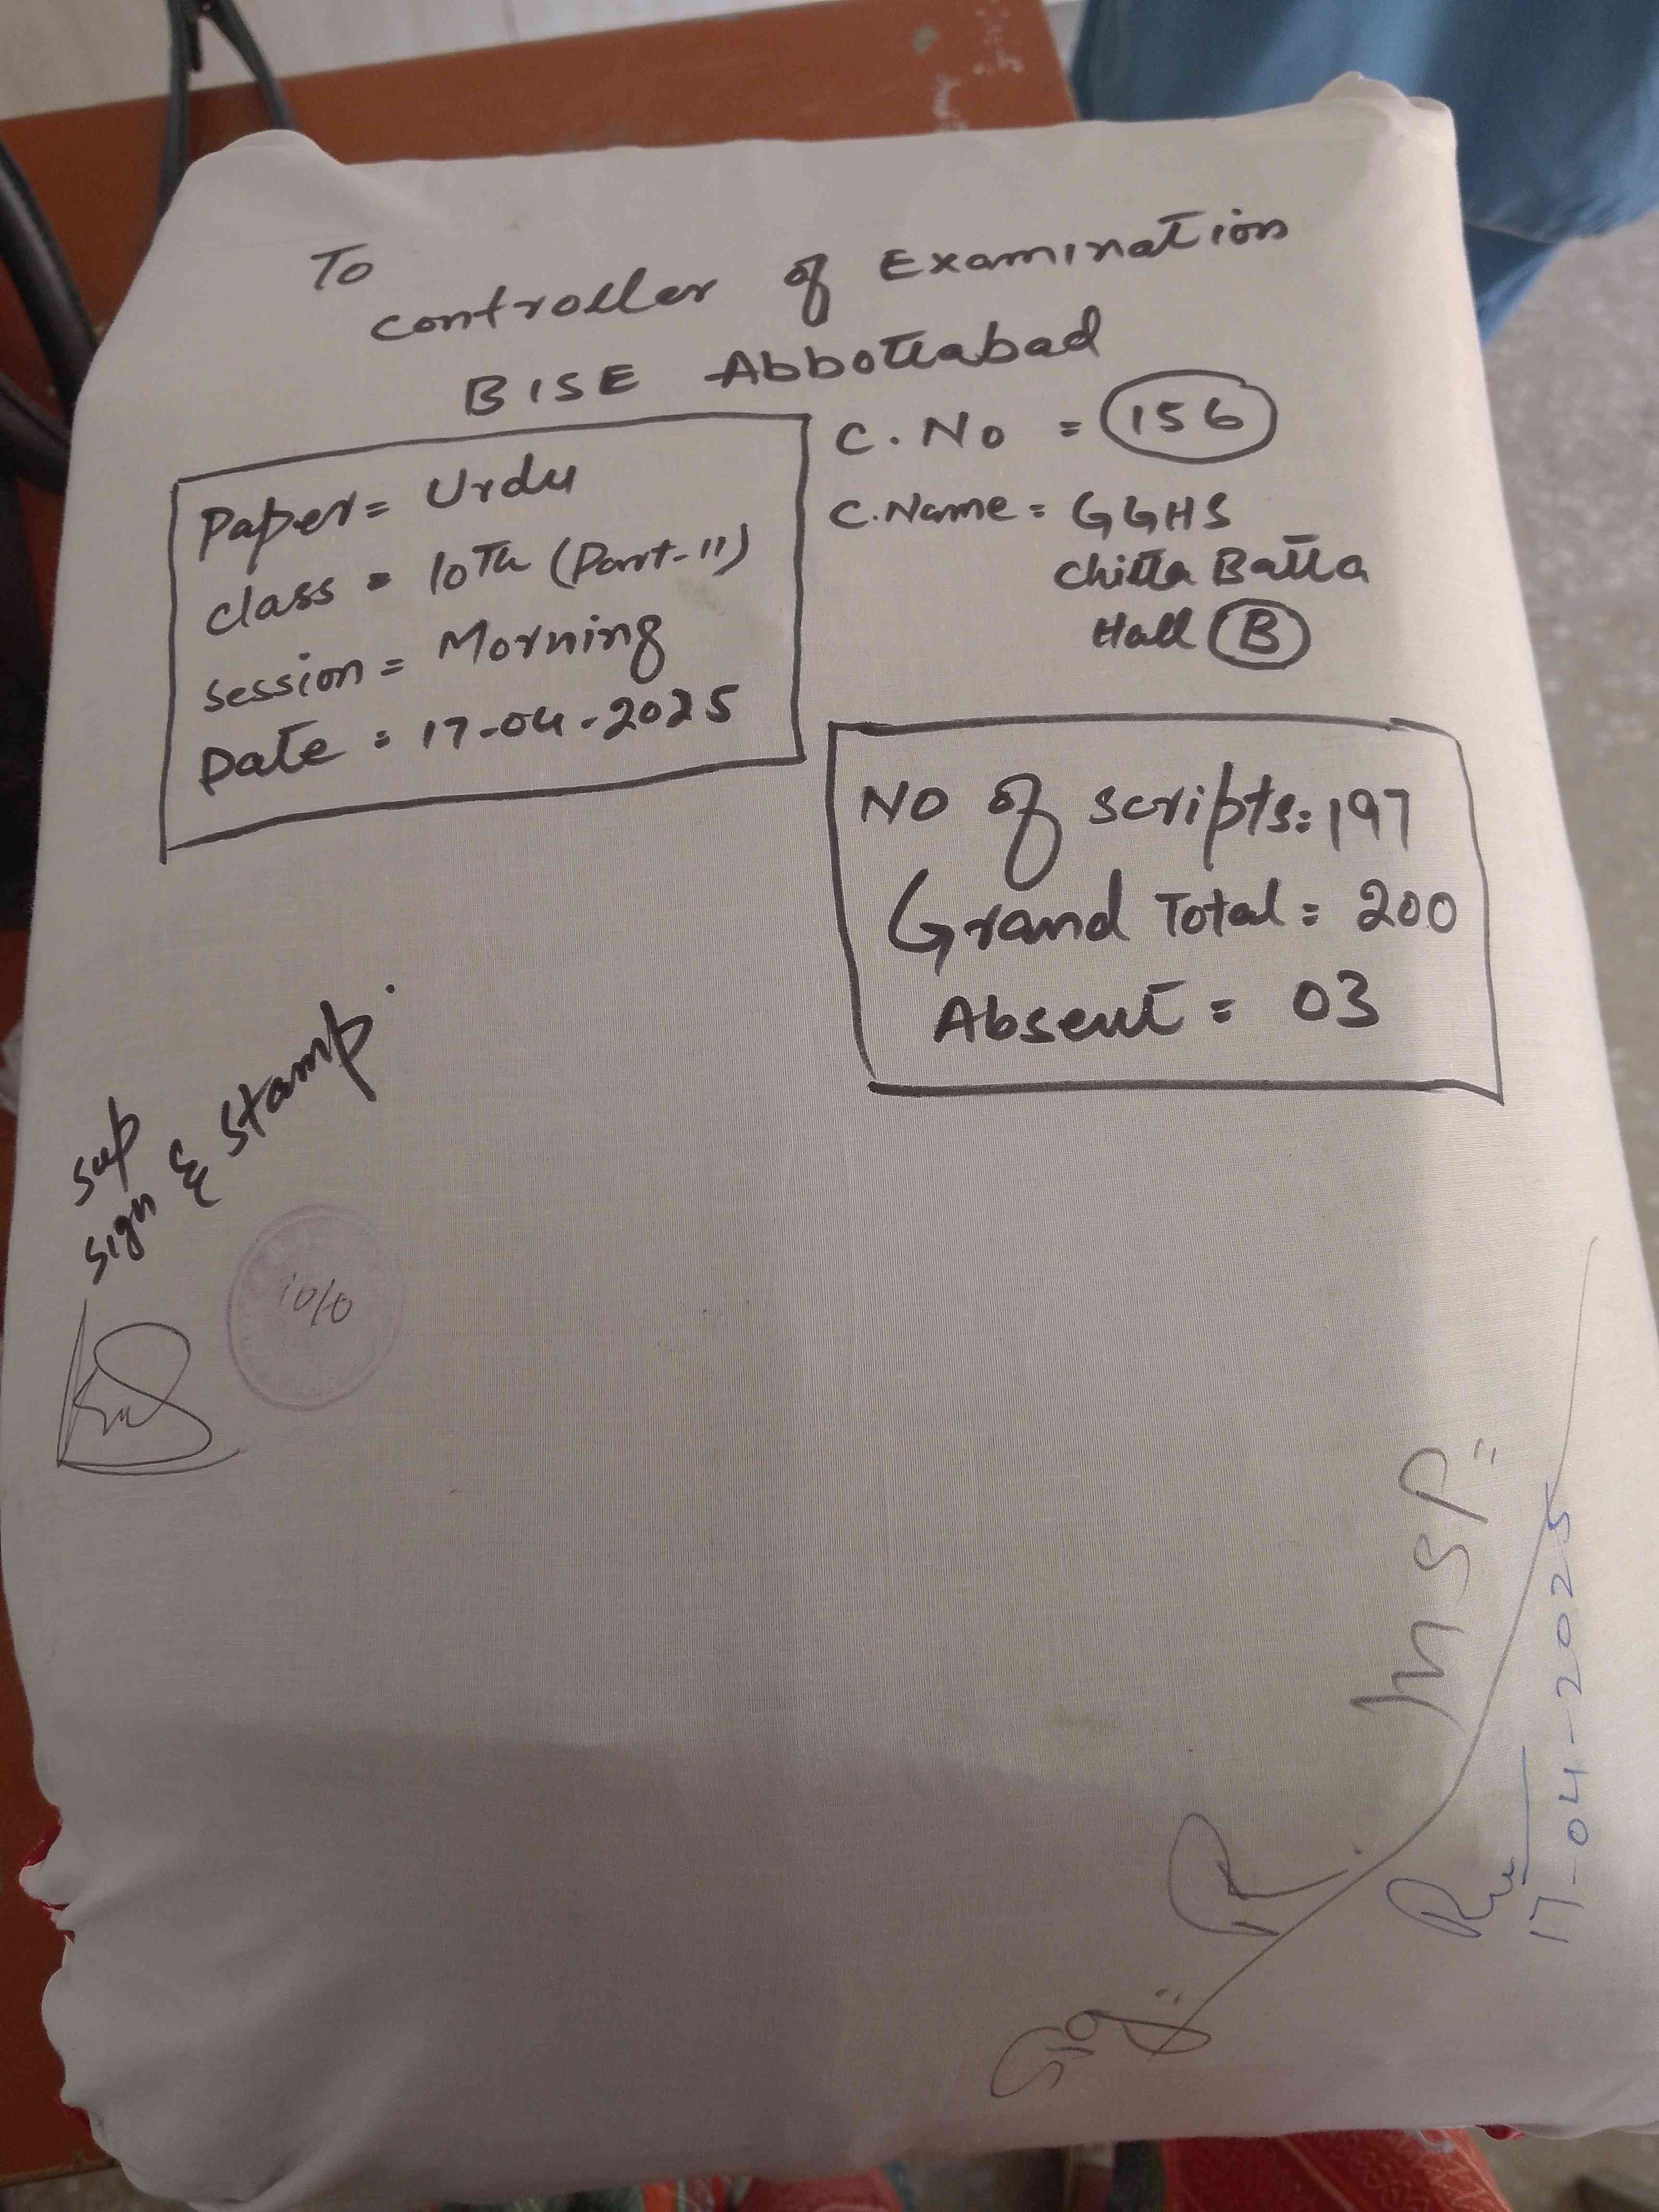 To
Controller of Examination
BISE Abbottabad
Paper = Urdu
class = 10Th (Part-II)
session = Morning
Date = 17-04-2025
C.No = 156
C.Name = GGHS
Chitta Batta
Hall B
NO of scripts = 197
Grand Total = 200
Absent = 03
sup
sign & stamp.
Sig:
17-04-2025